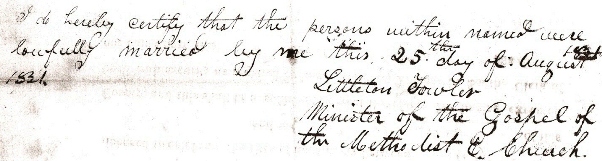 I do hereby certify that the persons within named were
lawfully married by me this 25th day of August 1831
1831.
Littleton Fowler
Minister of the Gospel of
the Methodist E. Church.